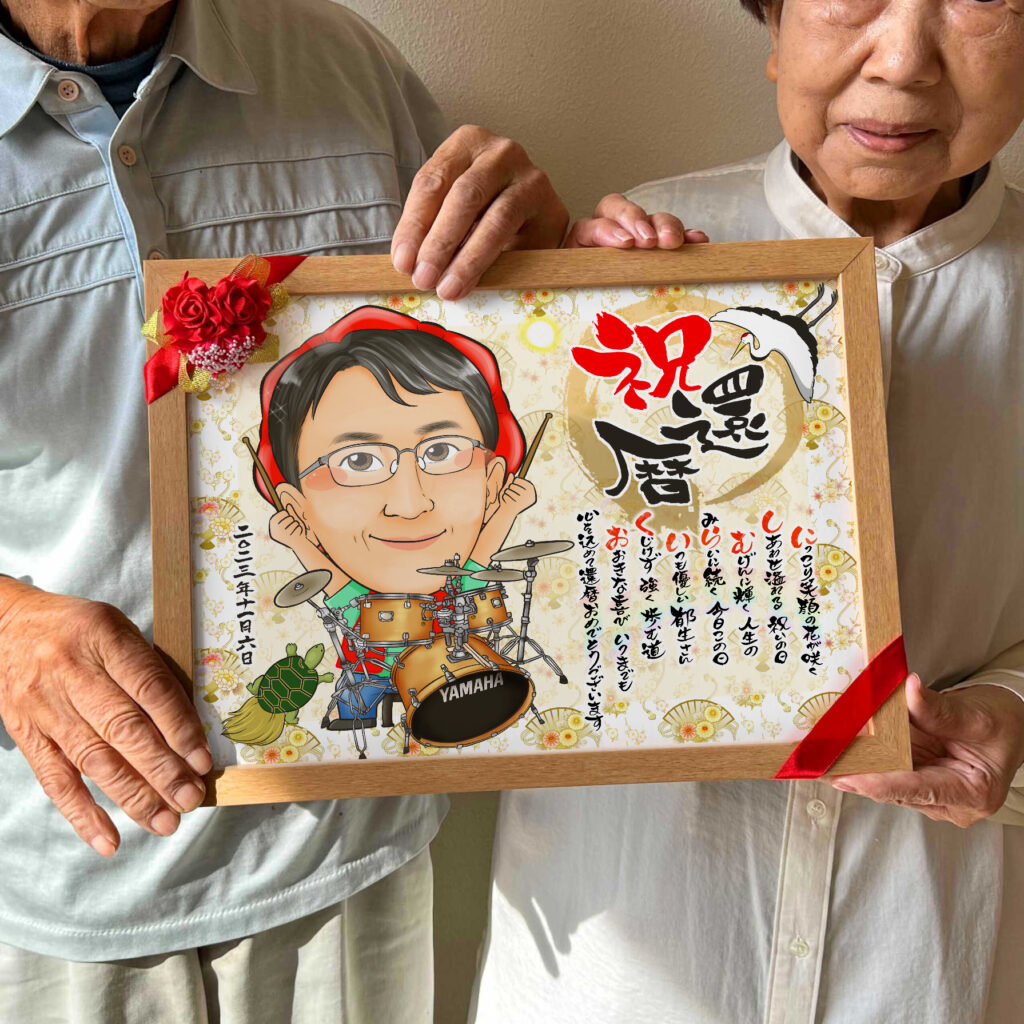 祝
還暦
にっこり笑顔の花が咲く
しあわせ溢れる 祝いの日
むげんに輝く 人生の
みらいに続く 今日この日
いつも優しい 郁生さん
くじけず 強く 歩む道
おおきな喜び いつまでも
心を込めて還暦おめでとうございます
二〇二三年十一月六日
YAMAHA